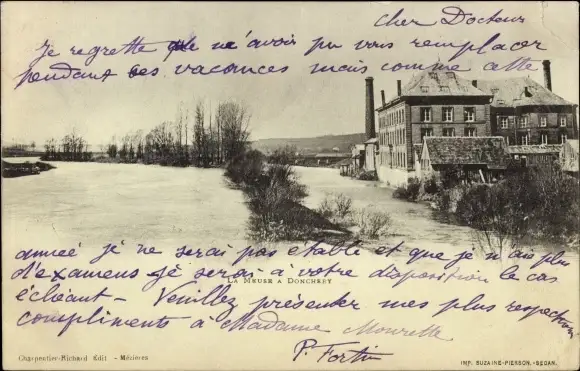 Cher Docteur
Je regrette de n'avoir pu vous remplacer
pendant ces vacances mais comme cette
année je ne serai pas établi et que je n'ai plus
d'examens je serai à votre disposition le cas
La Meuse a Donchrey
échéant – Veuillez présenter mes plus respectueux
compliments à Madame
P. Fortin
Charpentier-Richard Edit - Mézieres
IMP. SUZAINE-PIERSON, -SEDAN.